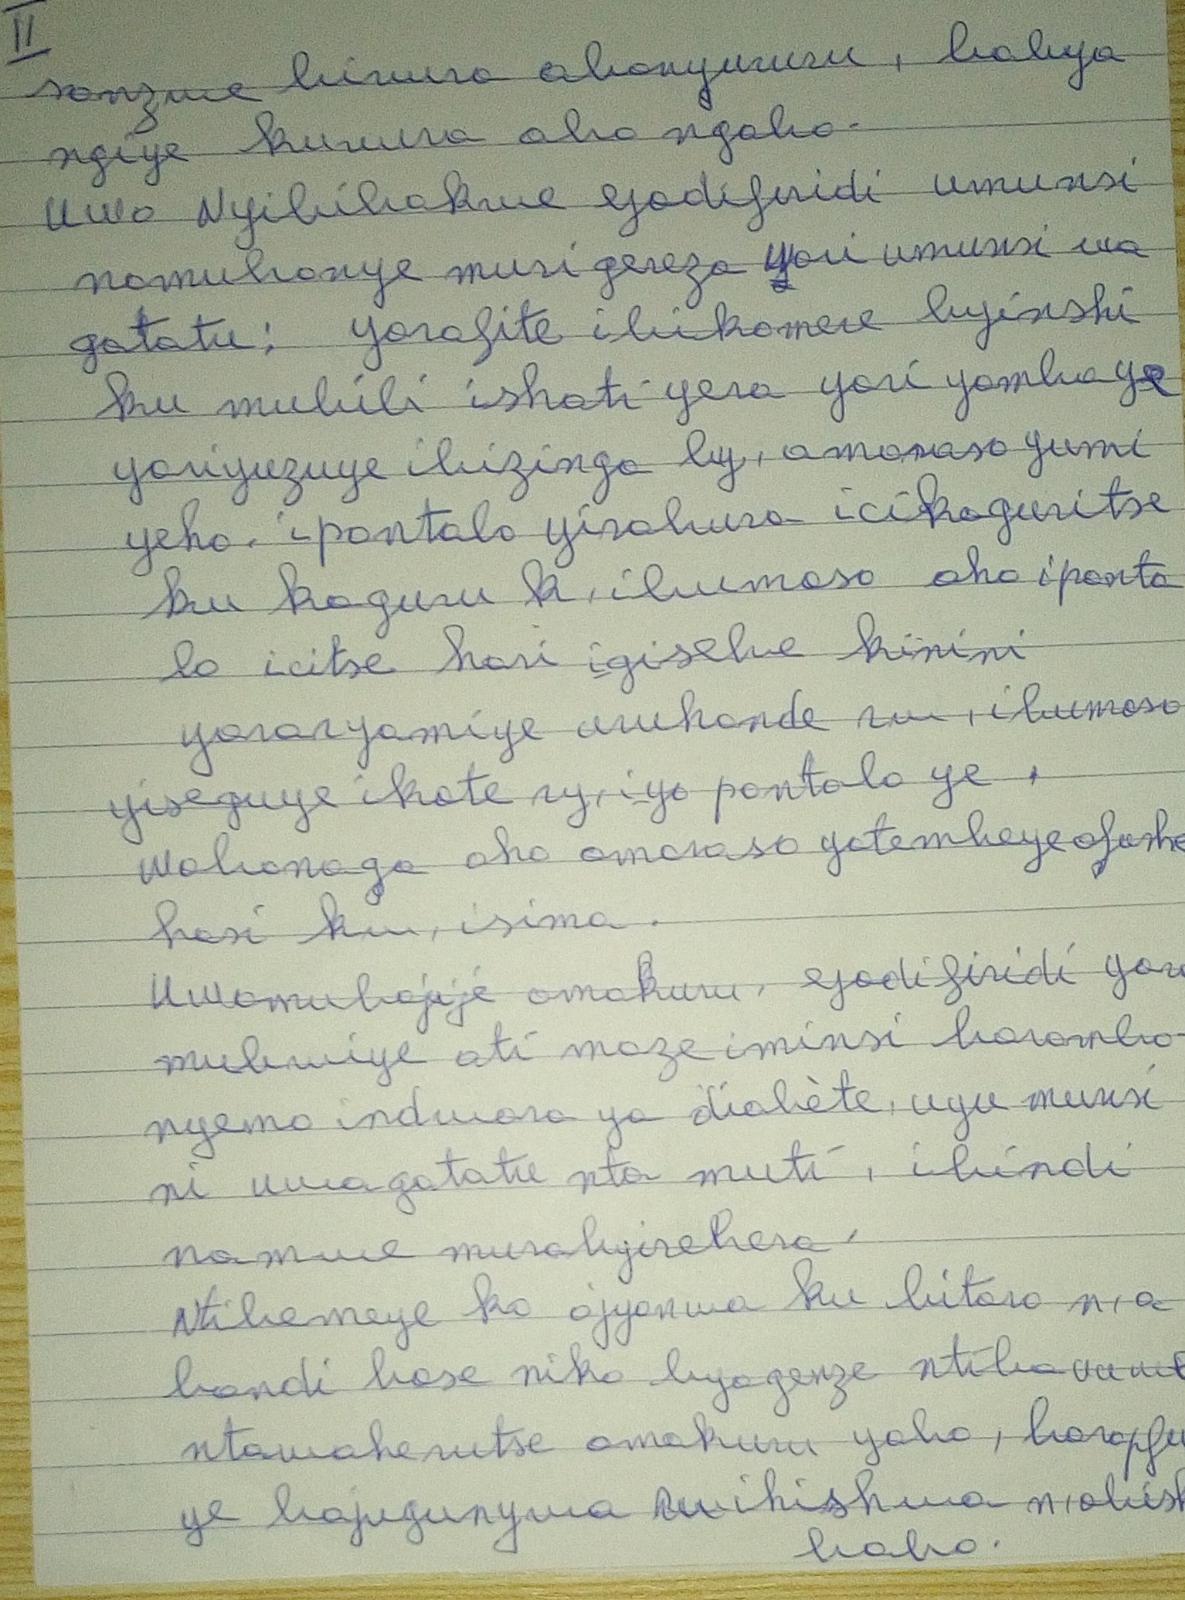 II
sanzwe birura abonyururu, babya
ngiye kurura aho ngaho.
Uwo Nyibihakwe egodifiridi umunsi
namubonye muri gereza yari umunsi wa
gatatu; yarafite ibikomere byinshi
ku mubili ishati yera yari yambaye
yariyuzuye ibizinga by, amaraso yumi
yeho. ipantalo yirabura icikaguritse
ku kaguru k, ibumoso aho ipanta
lo icitse hari igisebe kinini
yararyamiye uruhande rw, ibumoso
yiseguye ikote ry, iyo pantalo ye,
wabonaga aho amaraso yatembeye afashe
hasi kw, isima.
Uwamubajije amakuru, egodifiridi yara
mubwiye ati maze iminsi barambo-
nyemo indwara ya diabète, uyu munsi
ni uwagatatu nta muti, ibindi
namwe murabyirebera.
Ntibemeye ko ajyanwa ku bitaro n,a
bandi bose niko byagenze ntibavuwe
ntawaherutse amakuru yabo, barapfu
ye bajugunywa rwihishwa n,abish
babo.